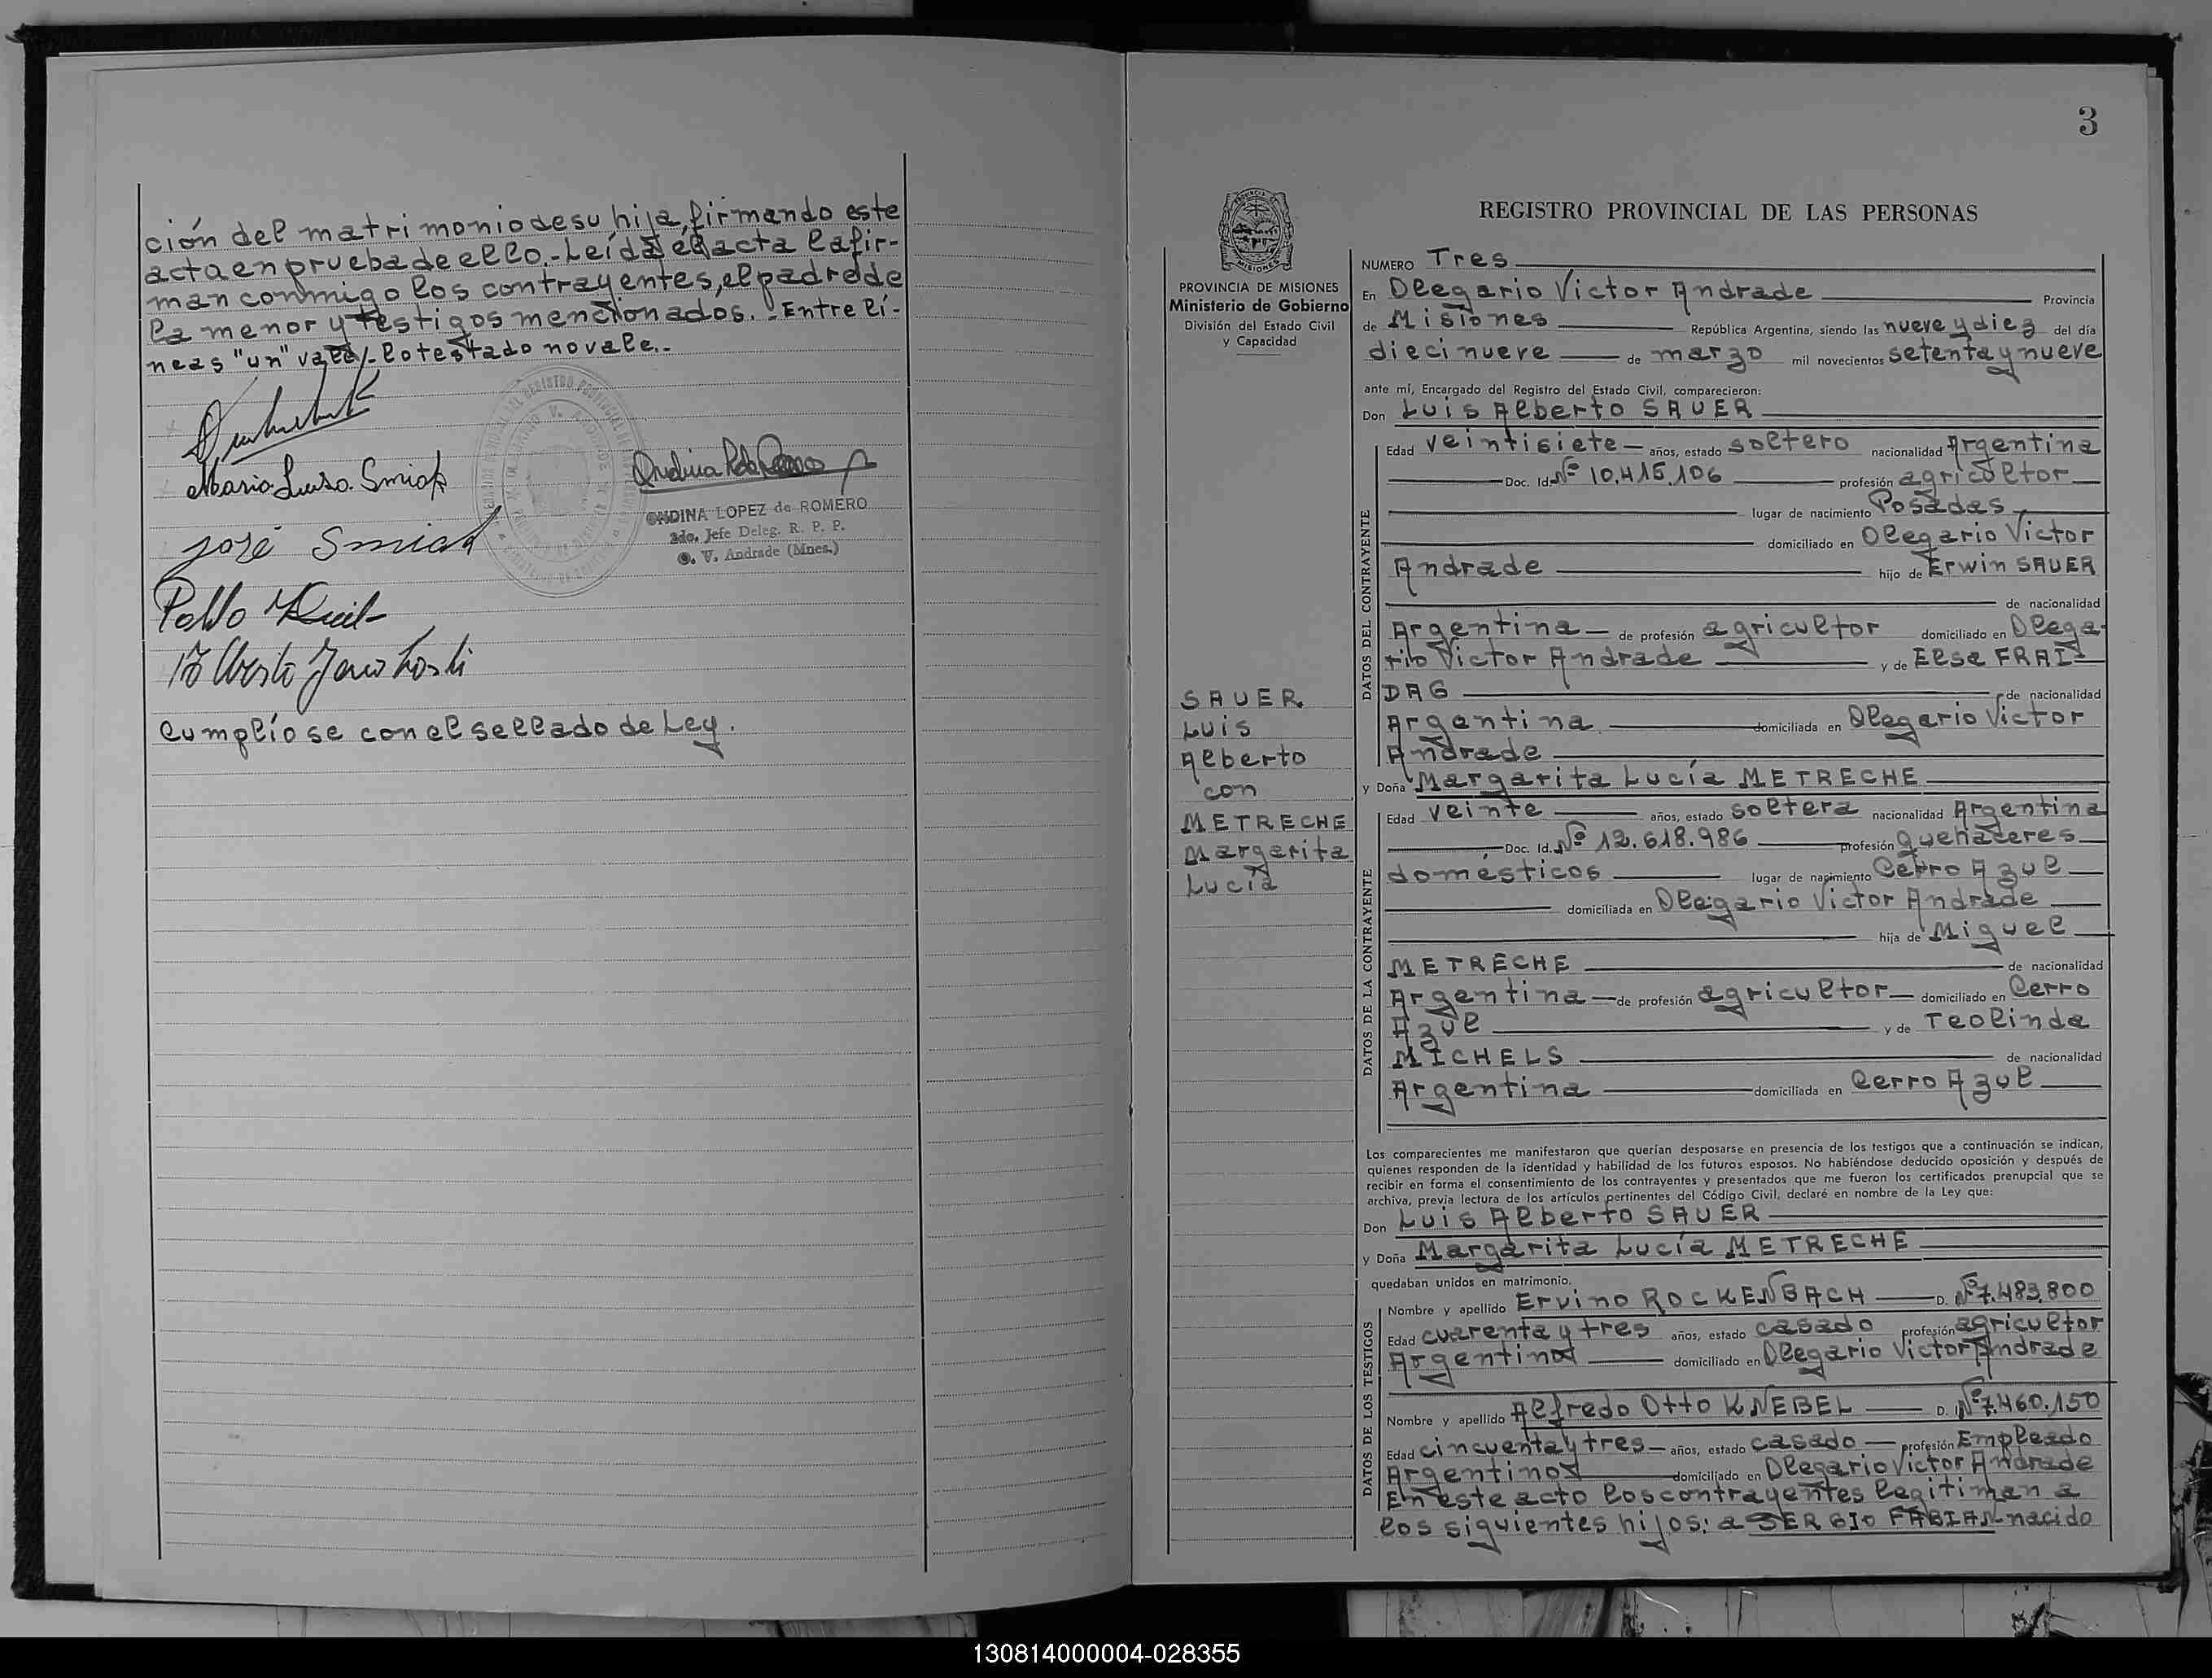 ción del matrimonio de su hija, firmando este
acta en prueba de ello.- Leída el acta la fir-
man conmigo los contrayentes, el padre de
la menor y testigos mencionados.- Entre lí-
neas "un" vale/- lo testado no vale.-
José
Pablo
ONDINA LOPEZ de ROMERO
2do. Jefe Deleg. R. P. P.
O. V. Andrade (Mnes.)
Cumplíose con el sellado de Ley.
3
MISIONES
PROVINCIA DE MISIONES
Ministerio de Gobierno
División del Estado Civil
y Capacidad
SAUER
Luis
Alberto
con
METRECHE
Margarita
Lucía
REGISTRO PROVINCIAL DE LAS PERSONAS
NUMERO Tres
En Olegario Victor Andrade Provincia
de Misiones República Argentina, siendo las nueve y diez del día
diecinueve de marzo mil novecientos setenta y nueve
ante mí, Encargado del Registro del Estado Civil, comparecieron:
Don Luis Alberto SAUER
DATOS DEL CONTRAYENTE
Edad veintisiete años, estado soltero nacionalidad Argentina
Doc. Id. Nº 10.415.106 profesión agricultor
lugar de nacimiento Posadas
domiciliado en Olegario Victor
Andrade hijo de Erwin SAUER
de nacionalidad
Argentina de profesión agricultor domiciliado en Olega-
rio Victor Andrade y de Elsa FRAI-
DAG de nacionalidad
Argentina domiciliada en Olegario Victor
Andrade
y Doña Margarita Lucía METRECHE
DATOS DE LA CONTRAYENTE
Edad veinte años, estado soltera nacionalidad Argentina
Doc. Id. Nº 12.618.986 profesión quehaceres
domésticos lugar de nacimiento Cerro Azul
domiciliada en Olegario Victor Andrade
hija de Miguel
METRECHE de nacionalidad
Argentina de profesión agricultor domiciliado en Cerro
Azul y de Teolinda
MICHELS de nacionalidad
Argentina domiciliada en Cerro Azul
Los comparecientes me manifestaron que querían desposarse en presencia de los testigos que a continuación se indican,
quienes responden de la identidad y habilidad de los futuros esposos. No habiéndose deducido oposición y después de
recibir en forma el consentimiento de los contrayentes y presentados que me fueron los certificados prenupcial que se
archiva, previa lectura de los artículos pertinentes del Código Civil, declaré en nombre de la Ley que:
Don Luis Alberto SAUER
y Doña Margarita Lucía METRECHE
quedaban unidos en matrimonio.
DATOS DE LOS TESTIGOS
Nombre y apellido Ervino ROCKENBACH D. Nº 7.483.800
Edad cuarenta y tres años, estado casado profesión agricultor
Argentino domiciliado en Olegario Victor Andrade
Nombre y apellido Alfredo Otto KNEBEL D. Nº 7.460.150
Edad cincuenta y tres años, estado casado profesión Empleado
Argentino domiciliado en Olegario Victor Andrade
En este acto los contrayentes legitiman a
los siguientes hijos: a SERGIO FABIAN nacido
130814000004-028355